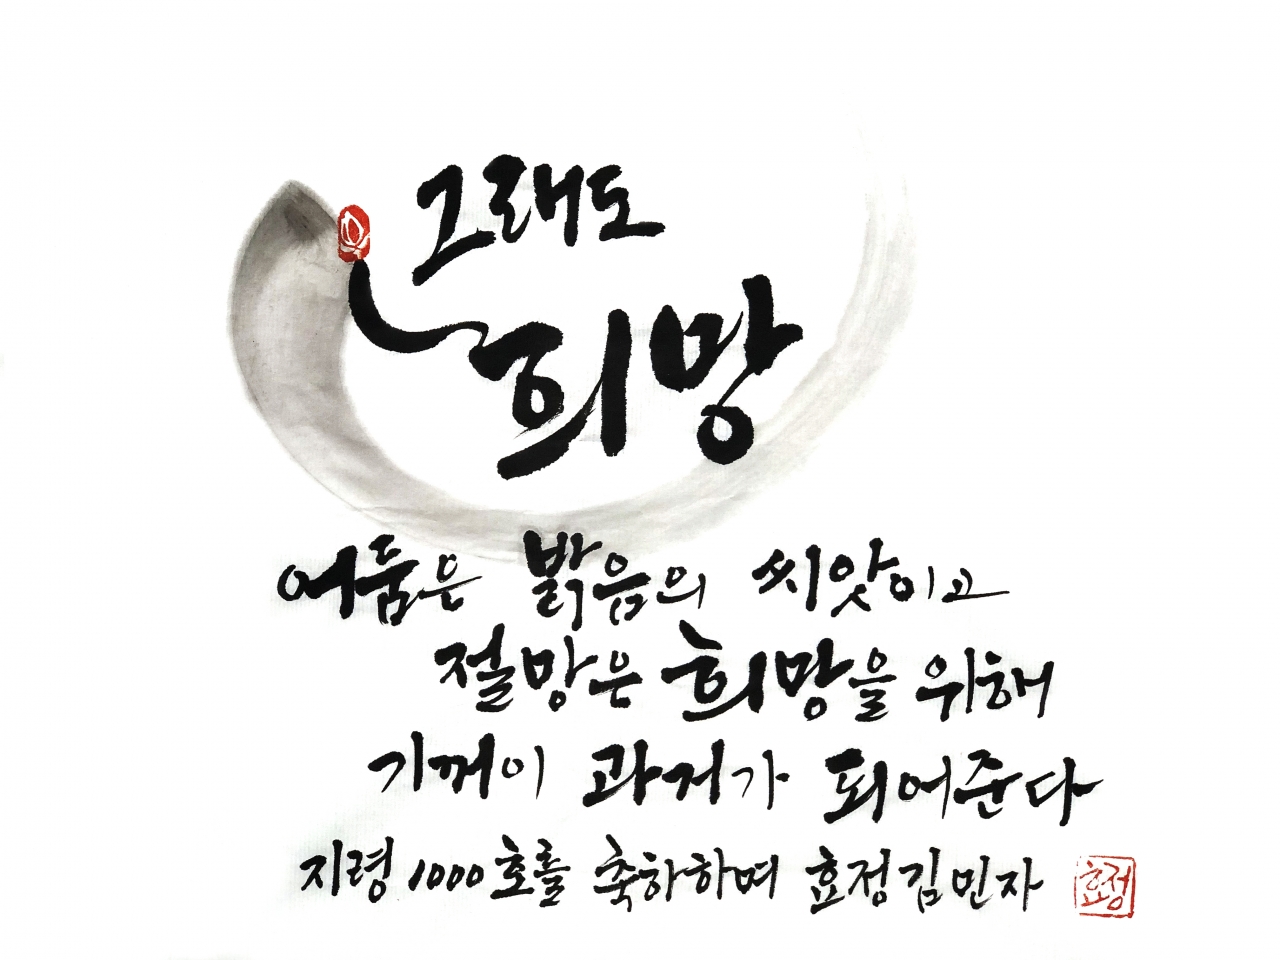 그래도
희망
어둠은 밝음의 씨앗이고
절망은 희망을 위해
기꺼이 과거가 되어준다
지령 1000호를 축하하며 효정김민자
효정